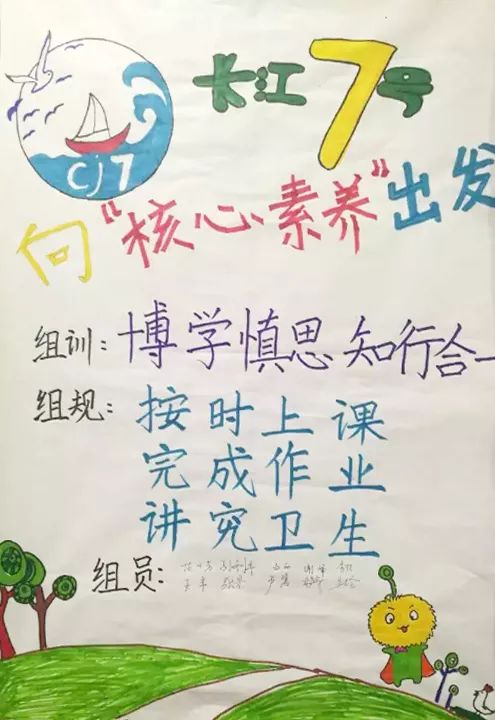 长江7号
CJ7
向“核心素养”出发
组训：博学慎思 知行合一
组规：按时上课
完成作业
讲究卫生
组员：